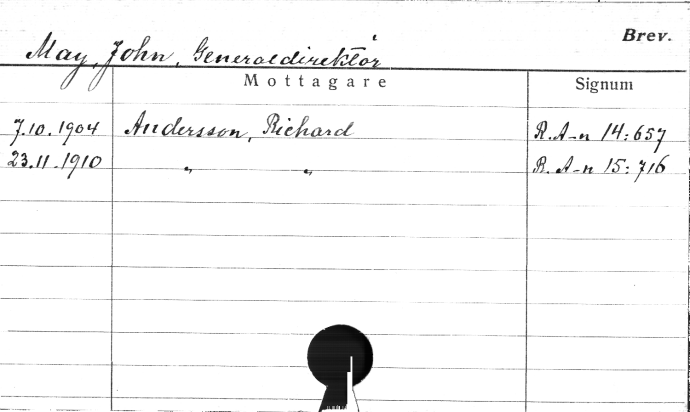 Brev.
May, John, Generaldirektör
Mottagare Signum
7.10.1904 Andersson, Richard R.A-n 14:657
23.11.1910 „ „ R.A-n 15:716